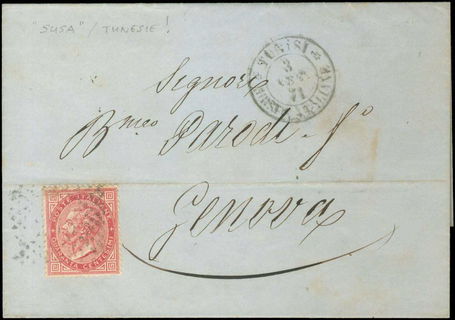 "SUSA" / TUNESIE!
TUNISI
3
71
Signor
Bmeo Parodi fo
Genova
POSTE ITALIANE
QUARANTA CENTESIMI